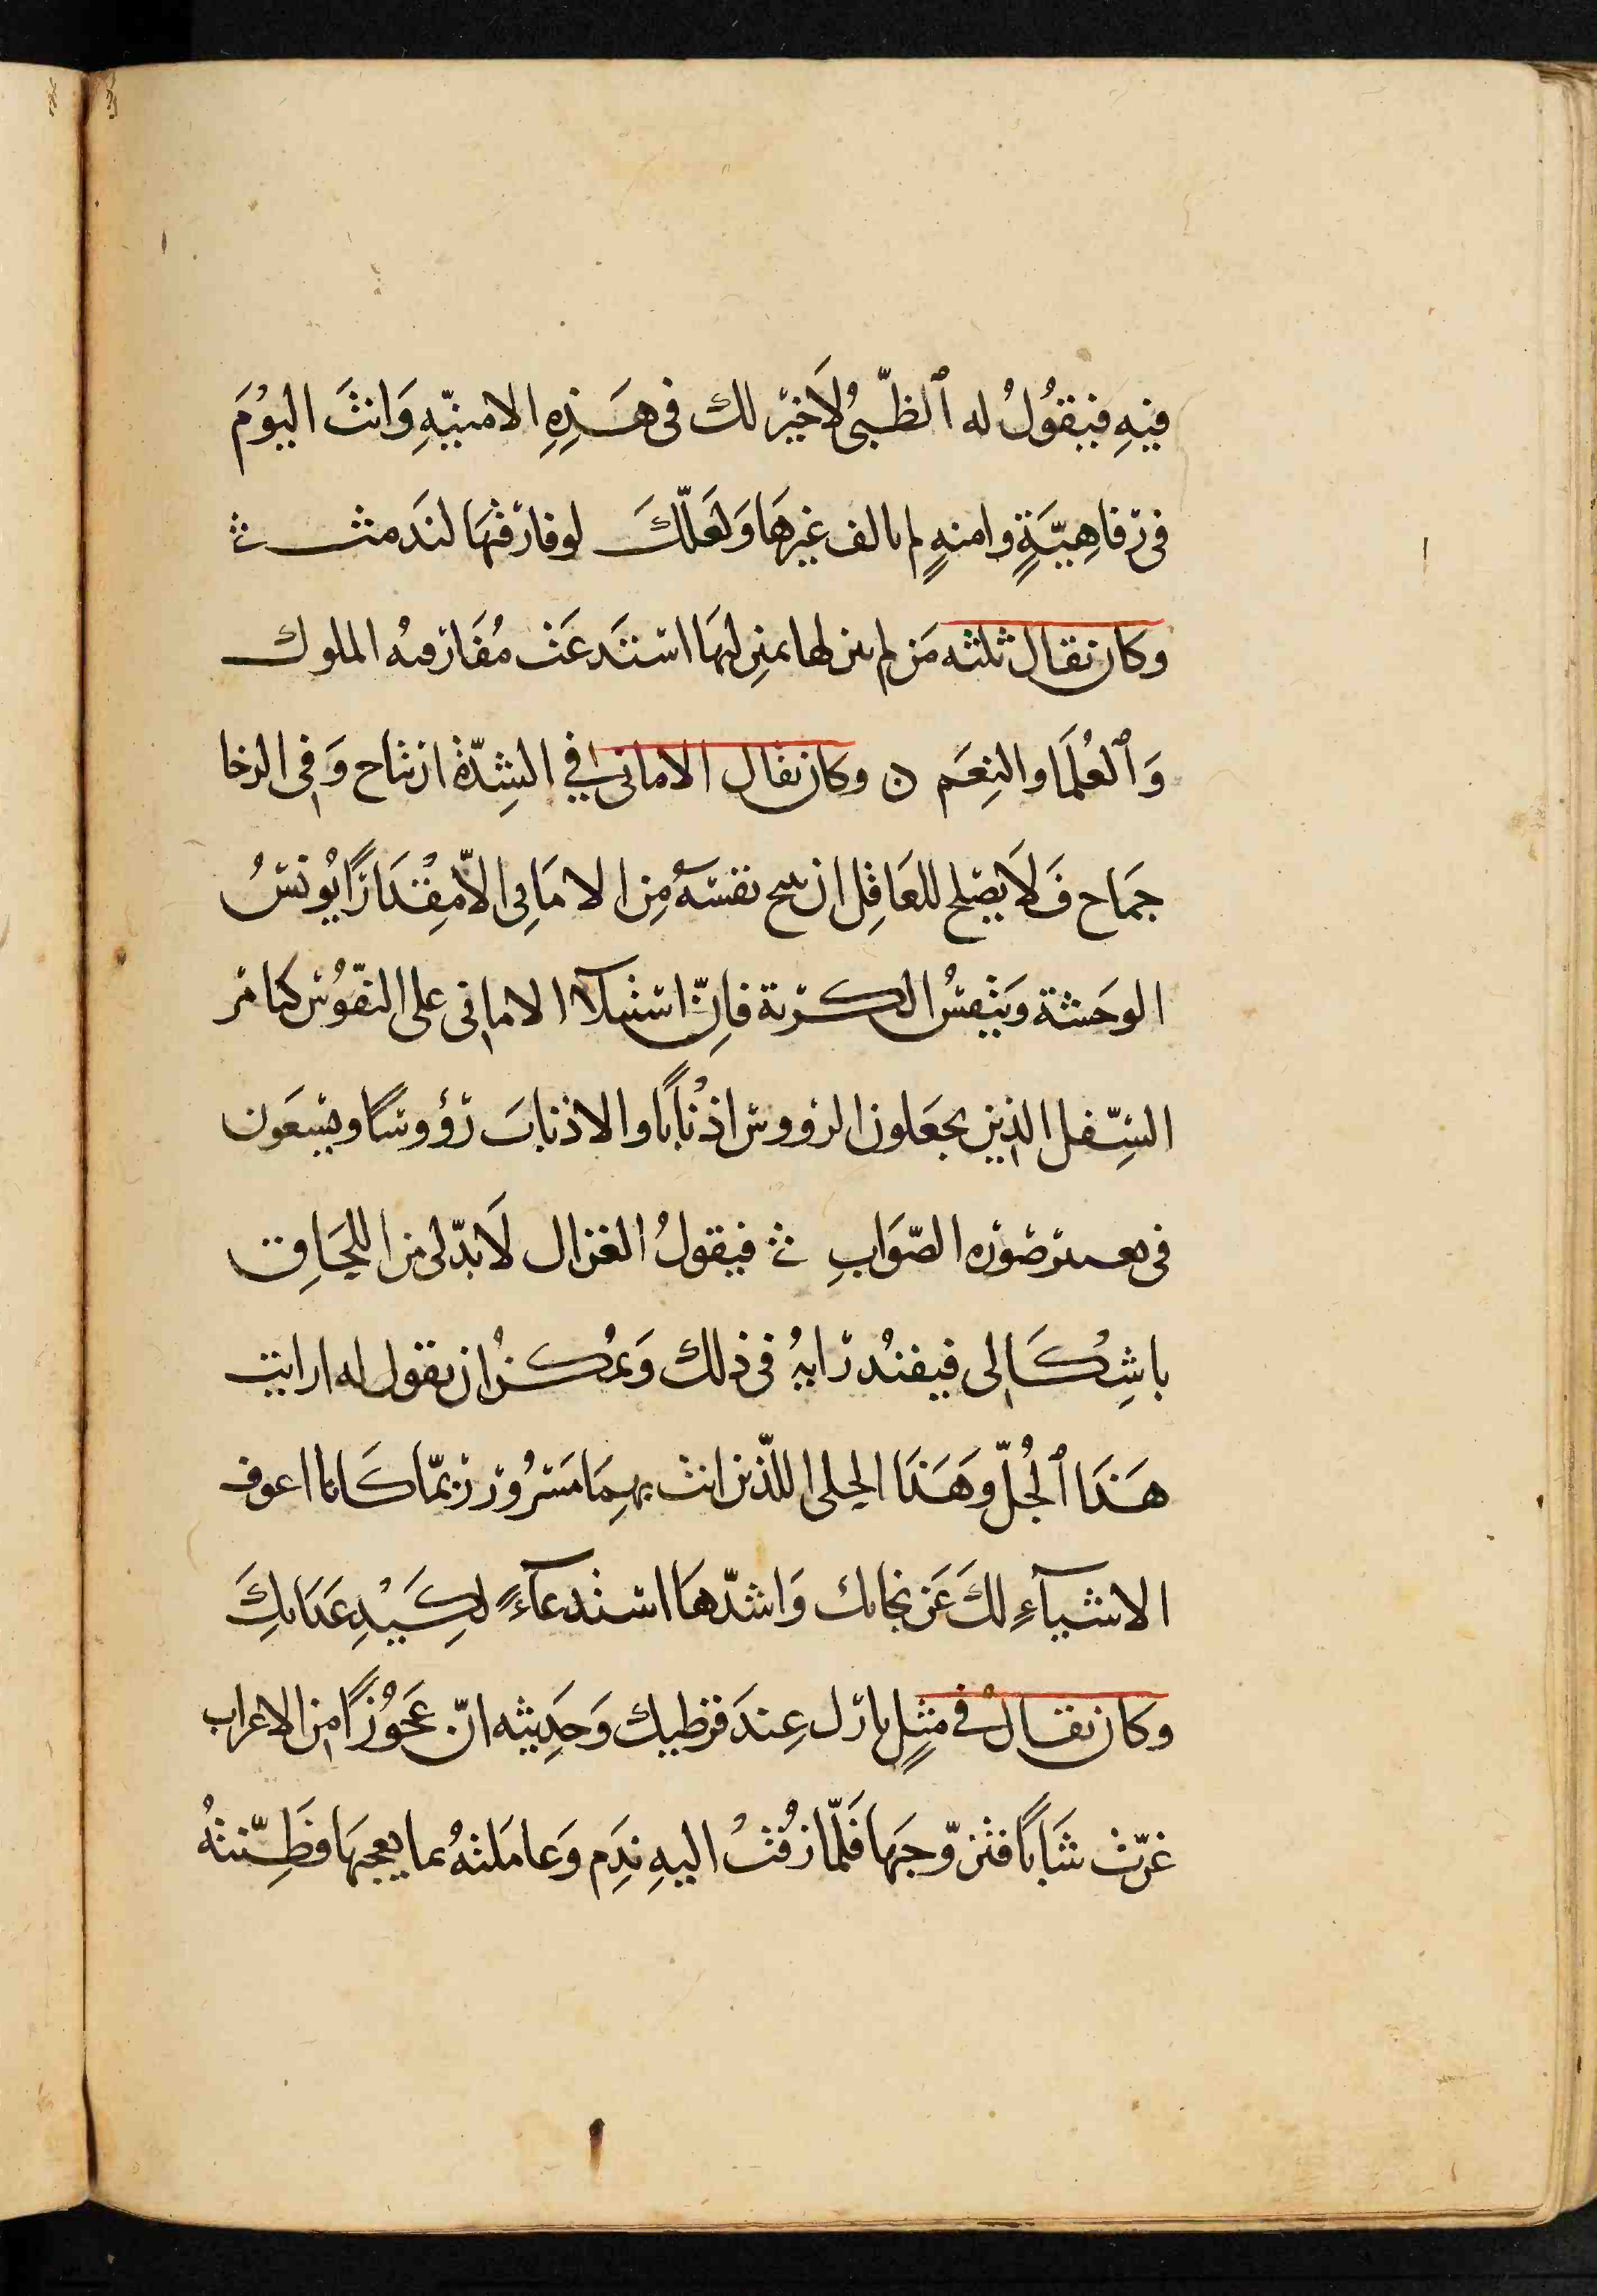 فيهِ فيقُولُ له ٱلظّبىُ لَا خَيْر لك فى هَذِهِ الامنيّهِ وَانتَ اليوُمَ
فى رفاهِيّةٍ وامنهٍ لم تالف غيرهَا وَلعَلّكَ لو فارقتهَا لندَمتَ
وكان يقال ثلثه مَن لم ينزلها بمنزِلهَا استَدعَت مُفَارقتهُ الملوك
وَٱلعُلمَا والنِعَم ن وكان يقال الامانى في الشِدّة ارتياح وَفى الرخا
جمَاح فَلَا يصْلح للعَاقِل ان يمنح نفسَهُ مِن الامَانِى الّا مِقْدَارًا يُونسُ
الوحَشة وَينفِسُ الكربة فاِنّ استيلآ الامانى على النفّوُس كتامّر
السِّفل الذين يجعَلون الرووس اذْنَابًا والاذناب رؤوسًا ويسعَون
فى صوره الصّوَابِ فيقولُ الغزال لَا بدّ لى من اللّحَاقِ
باشِكَالى فيفندُ رايهُ فى ذلك وَيمُكنُ ان يقول له ارايت
هَذَا ٱلجُلّ وهَذَا الحلى اللذّين انت بهِمَا مَسْرُوْر ربمّا كَانا اعوق
الاشيآءِ لكَ عَن نجاتك وَاشدّهَا استدعآءً لكَيْدِ عَدَاتكَ
وكان يقال فى مثلٍ عِندَ وَحَدِيثه انّ عَجوُزًا مِن الاعراب
غرّت شَابًا فتزوّجَها فَلمّا زُفتْ اليهِ نَدِم وَعامَلتهُ بما يعجبهَا فظِنّتهُ